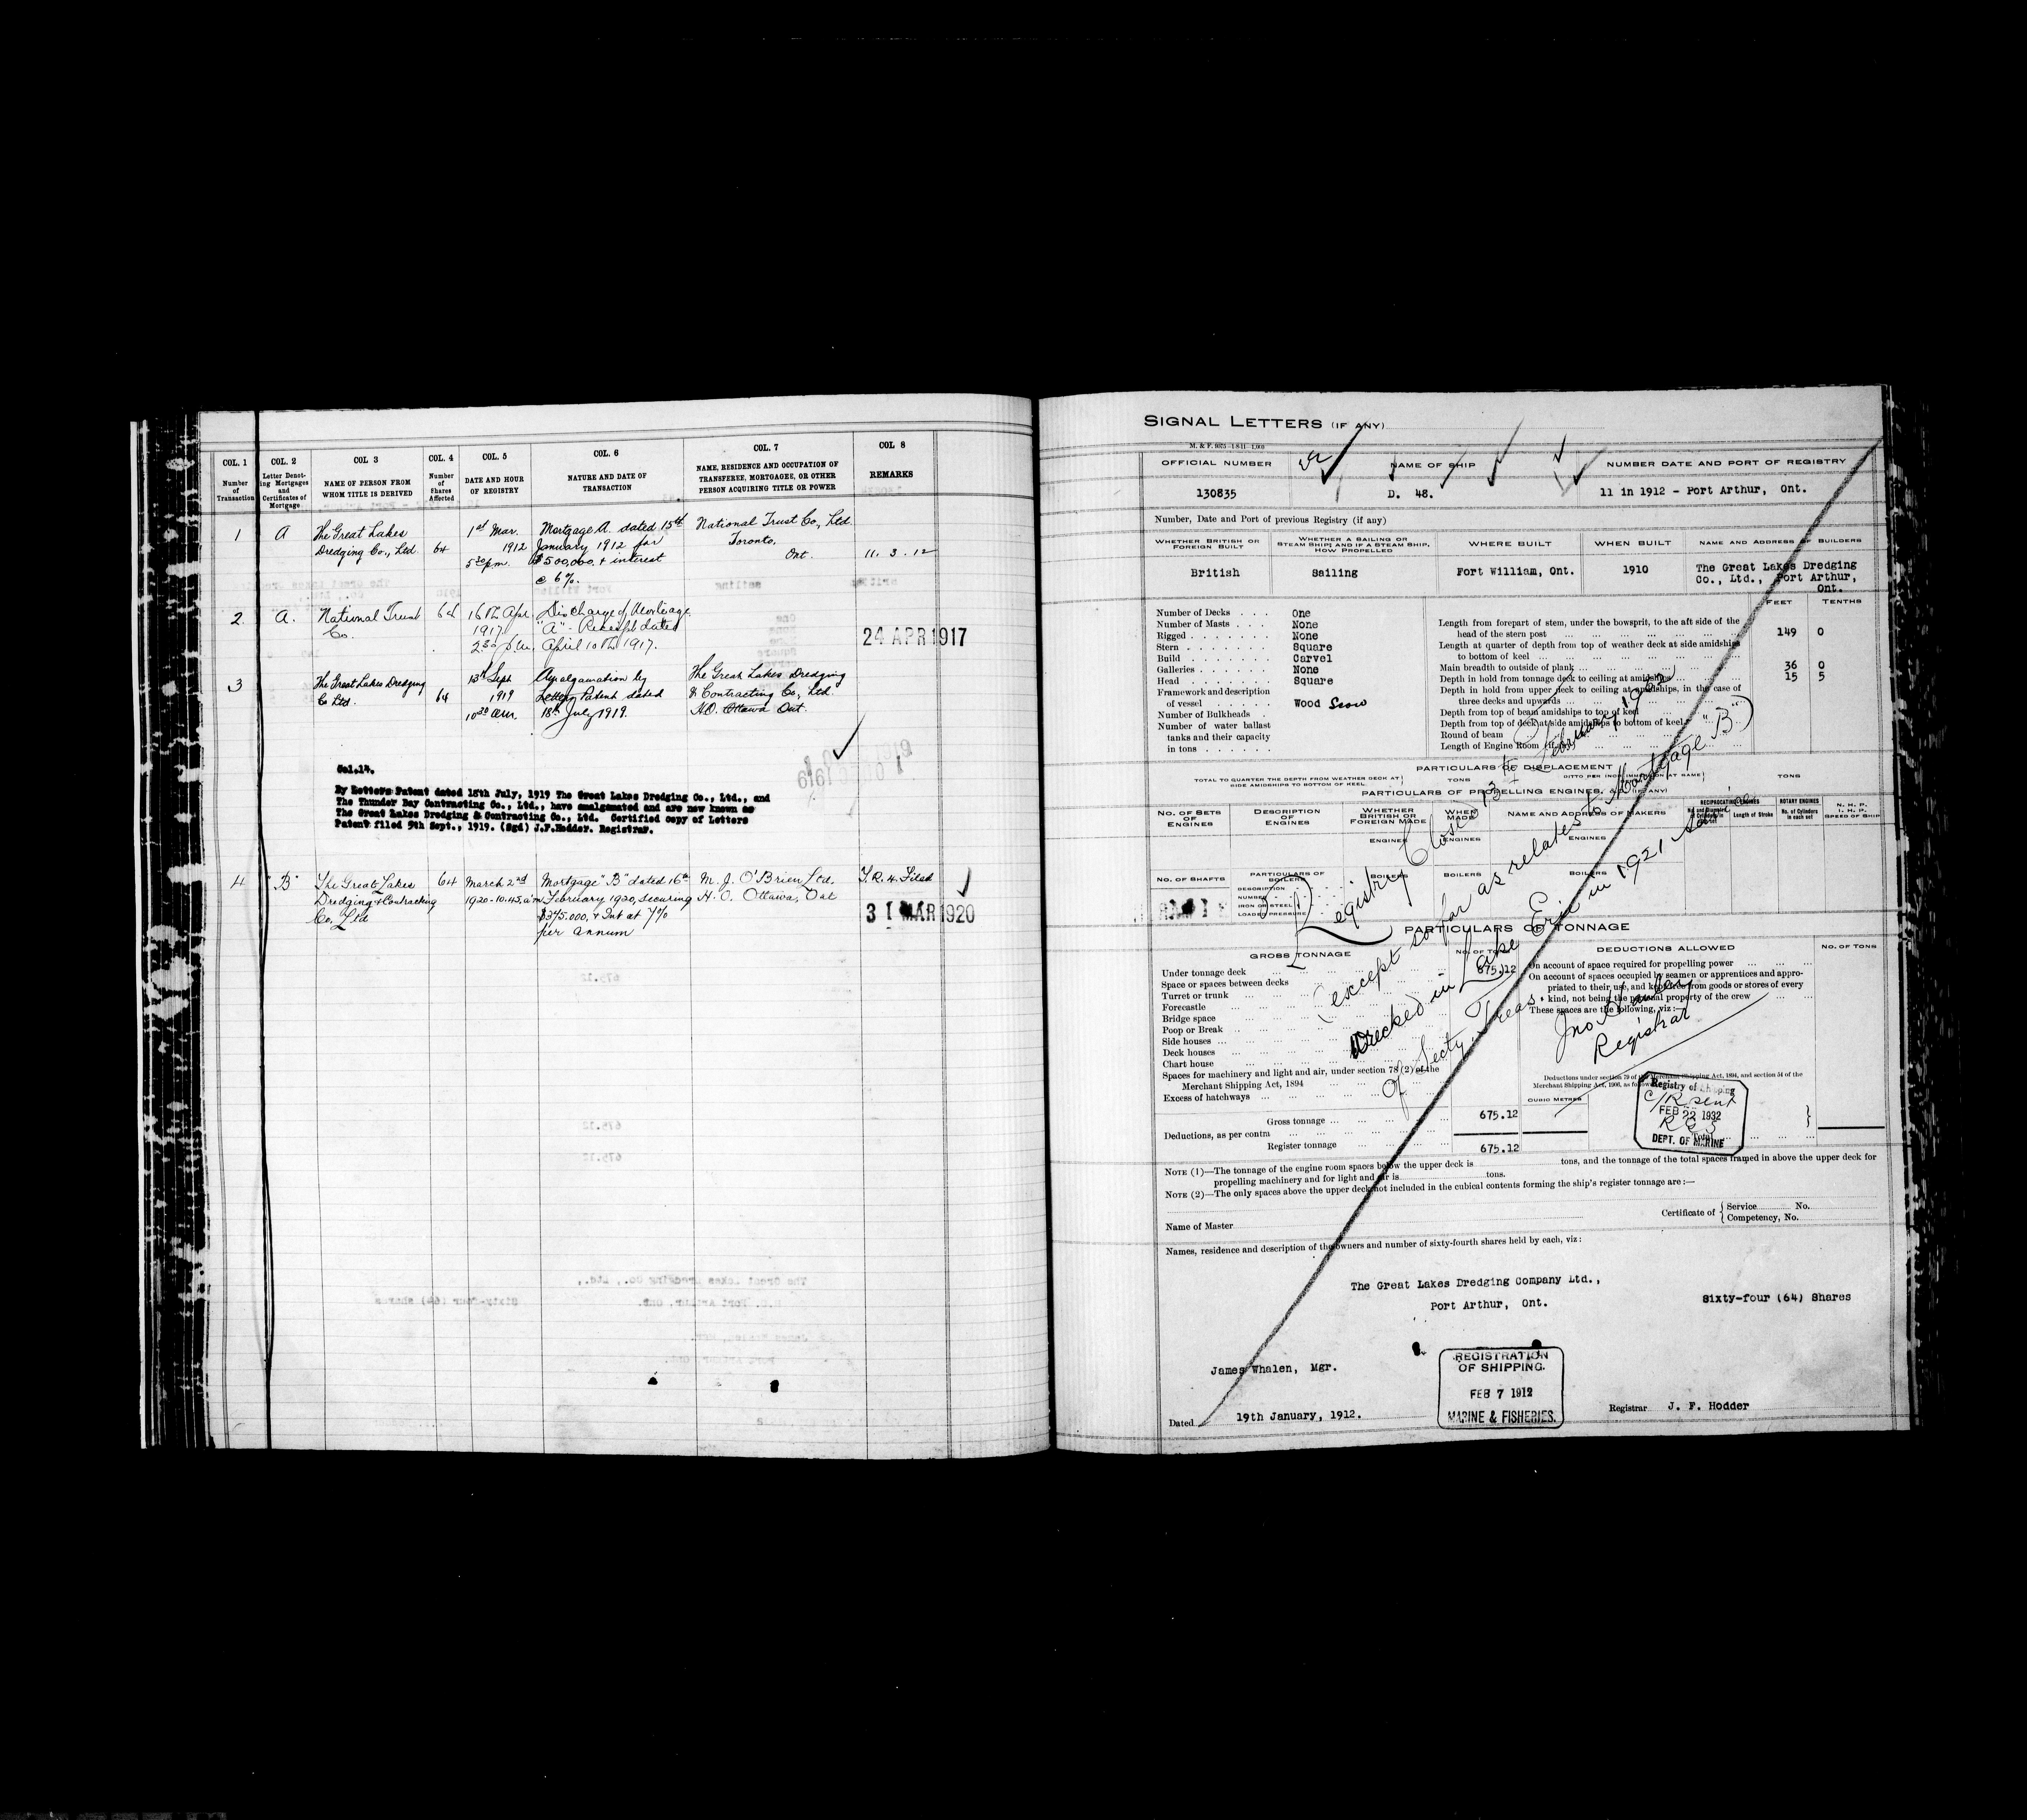 COL. 1 COL. 2 COL 3 COL. 4 COL. 5 COL. 6 COL. 7 COL 8
Number of Transaction
Letter Denoting Mortgages and Certificates of Mortgage
NAME OF PERSON FROM WHOM TITLE IS DERIVED
Number of Shares Affected
DATE AND HOUR OF REGISTRY
NATURE AND DATE OF TRANSACTION
NAME, RESIDENCE AND OCCUPATION OF TRANSFEREE, MORTGAGEE, OR OTHER PERSON ACQUIRING TITLE OR POWER
REMARKS
1 A The Great Lakes 1st Mar. Mortgage A. dated 15th National Trust Co, Ltd
Dredging Co., Ltd 64 1912 January 1912 for Toronto,
5 30 pm. $500,000. & interest Ont. 11. 3. 12
@ 6%.
2 A. National Trust 64 16th Apr. Discharge of Mortgage
Co. 1917 "A" - dated
2 30 p.m. April 10th 1917. 24 APR 1917
3 The Great Lakes Dredging 13th Sept Amalgamation by The Great Lakes Dredging
Co Ltd. 64 1919 Letters Patent dated & Contracting Co, Ltd.
10 30 am. 18th July 1919. H.O. Ottawa Ont.
Col.14.
By Letters Patent dated 18th July, 1919 The Great Lakes Dredging Co., Ltd., and
The Thunder Bay Contracting Co., Ltd., have amalgamated and are now known as
The Great Lakes Dredging & Contracting Co., Ltd. Certified copy of Letters
Patent filed 9th Sept., 1919. (Sgd) J.F.Hodder. Registrar.
4 "B" The Great Lakes 64 March 2nd Mortgage "B" dated 16th M. J. O'Brien Ltd. T.R. 4. Filed
Dredging & Contracting 1920-10.45.a.m. February 1920, securing H. O. Ottawa, Ont
Co. Ltd $375.000, & Int at 7% 31 MAR 1920
per annum
SIGNAL LETTERS (IF ANY)
M. & F.
OFFICIAL NUMBER NAME OF SHIP NUMBER DATE AND PORT OF REGISTRY
130835 D. 48. 11 in 1912 - Port Arthur, Ont.
Number, Date and Port of previous Registry (if any)
WHETHER BRITISH OR FOREIGN BUILT
WHETHER A SAILING OR STEAM SHIP; AND IF A STEAM SHIP, HOW PROPELLED
WHERE BUILT
WHEN BUILT
NAME AND ADDRESS OF BUILDERS
British Sailing Fort William, Ont. 1910 The Great Lakes Dredging
Co., Ltd., Port Arthur,
Ont.
FEET TENTHS
Number of Decks One
Number of Masts None
Rigged None
Stern Square
Build Carvel
Galleries None
Head Square
Framework and description
of vessel Wood Scow
Number of Bulkheads
Number of water ballast
tanks and their capacity
in tons
Length from forepart of stem, under the bowsprit, to the aft side of the
head of the stern post 149 0
Length at quarter of depth from top of weather deck at side amidships
to bottom of keel
Main breadth to outside of plank 36 0
Depth in hold from tonnage deck to ceiling at amidships 15 5
Depth in hold from upper deck to ceiling at amidships, in the case of
three decks and upwards
Depth from top of beam amidships to top of keel
Depth from top of deck at side amidships to bottom of keel
Round of beam
Length of Engine Room (if any)
PARTICULARS OF DISPLACEMENT
TOTAL TO QUARTER THE DEPTH FROM WEATHER DECK AT SIDE AMIDSHIPS TO BOTTOM OF KEEL TONS DITTO PER INCH IMMERSION AT SAME TONS
PARTICULARS OF PROPELLING ENGINES, &C. (IF ANY)
NO. OF SETS OF ENGINES
DESCRIPTION OF ENGINES
WHETHER BRITISH OR FOREIGN MADE
WHEN MADE
NAME AND ADDRESS OF MAKERS
RECIPROCATING ENGINES
Length of Stroke
ROTARY ENGINES
No. of Cylinders in each set
N. H. P.
I. H. P.
SPEED OF SHIP
ENGINES ENGINES ENGINES
NO. OF SHAFTS PARTICULARS OF BOILERS BOILERS BOILERS BOILERS
DESCRIPTION
NUMBER
IRON OR STEEL
LOADED PRESSURE
Registry Closed 13th February 1932
(except so far as relates to Mortgage "B")
Wrecked in Lake Erie in 1921
of Secty. Treas.
Jno Hanley
Registrar
PARTICULARS OF TONNAGE
GROSS TONNAGE NO. OF TONS DEDUCTIONS ALLOWED NO. OF TONS
Under tonnage deck 675.12
Space or spaces between decks
Turret or trunk
Forecastle
Bridge space
Poop or Break
Side houses
Deck houses
Chart house
Spaces for machinery and light and air, under section 78 (2) of the
Merchant Shipping Act, 1894
Excess of hatchways
Gross tonnage 675.12
Deductions, as per contra
Register tonnage 675.12
On account of space required for propelling power
On account of spaces occupied by seamen or apprentices and appro-
priated to their use, and kept free from goods or stores of every
kind, not being the personal property of the crew
These spaces are the following, viz :—
Deductions under section 79 of the Merchant Shipping Act, 1894, and section 54 of the
Merchant Shipping Act, 1906, as follows
CUBIC METRES
Registry of Shipping
C/R sent
FEB 22 1932
DEPT. OF MARINE
Total
NOTE (1)—The tonnage of the engine room spaces below the upper deck is tons, and the tonnage of the total spaces framed in above the upper deck for
propelling machinery and for light and air is tons.
NOTE (2)—The only spaces above the upper deck not included in the cubical contents forming the ship's register tonnage are :—
Name of Master Certificate of { Service No.
Competency, No.
Names, residence and description of the owners and number of sixty-fourth shares held by each, viz :
The Great Lakes Dredging Company Ltd.,
Port Arthur, Ont. Sixty-four (64) Shares
James Whalen, Mgr.
REGISTRATION
OF SHIPPING.
FEB 7 1912
MARINE & FISHERIES.
Dated 19th January, 1912. Registrar J. F. Hodder